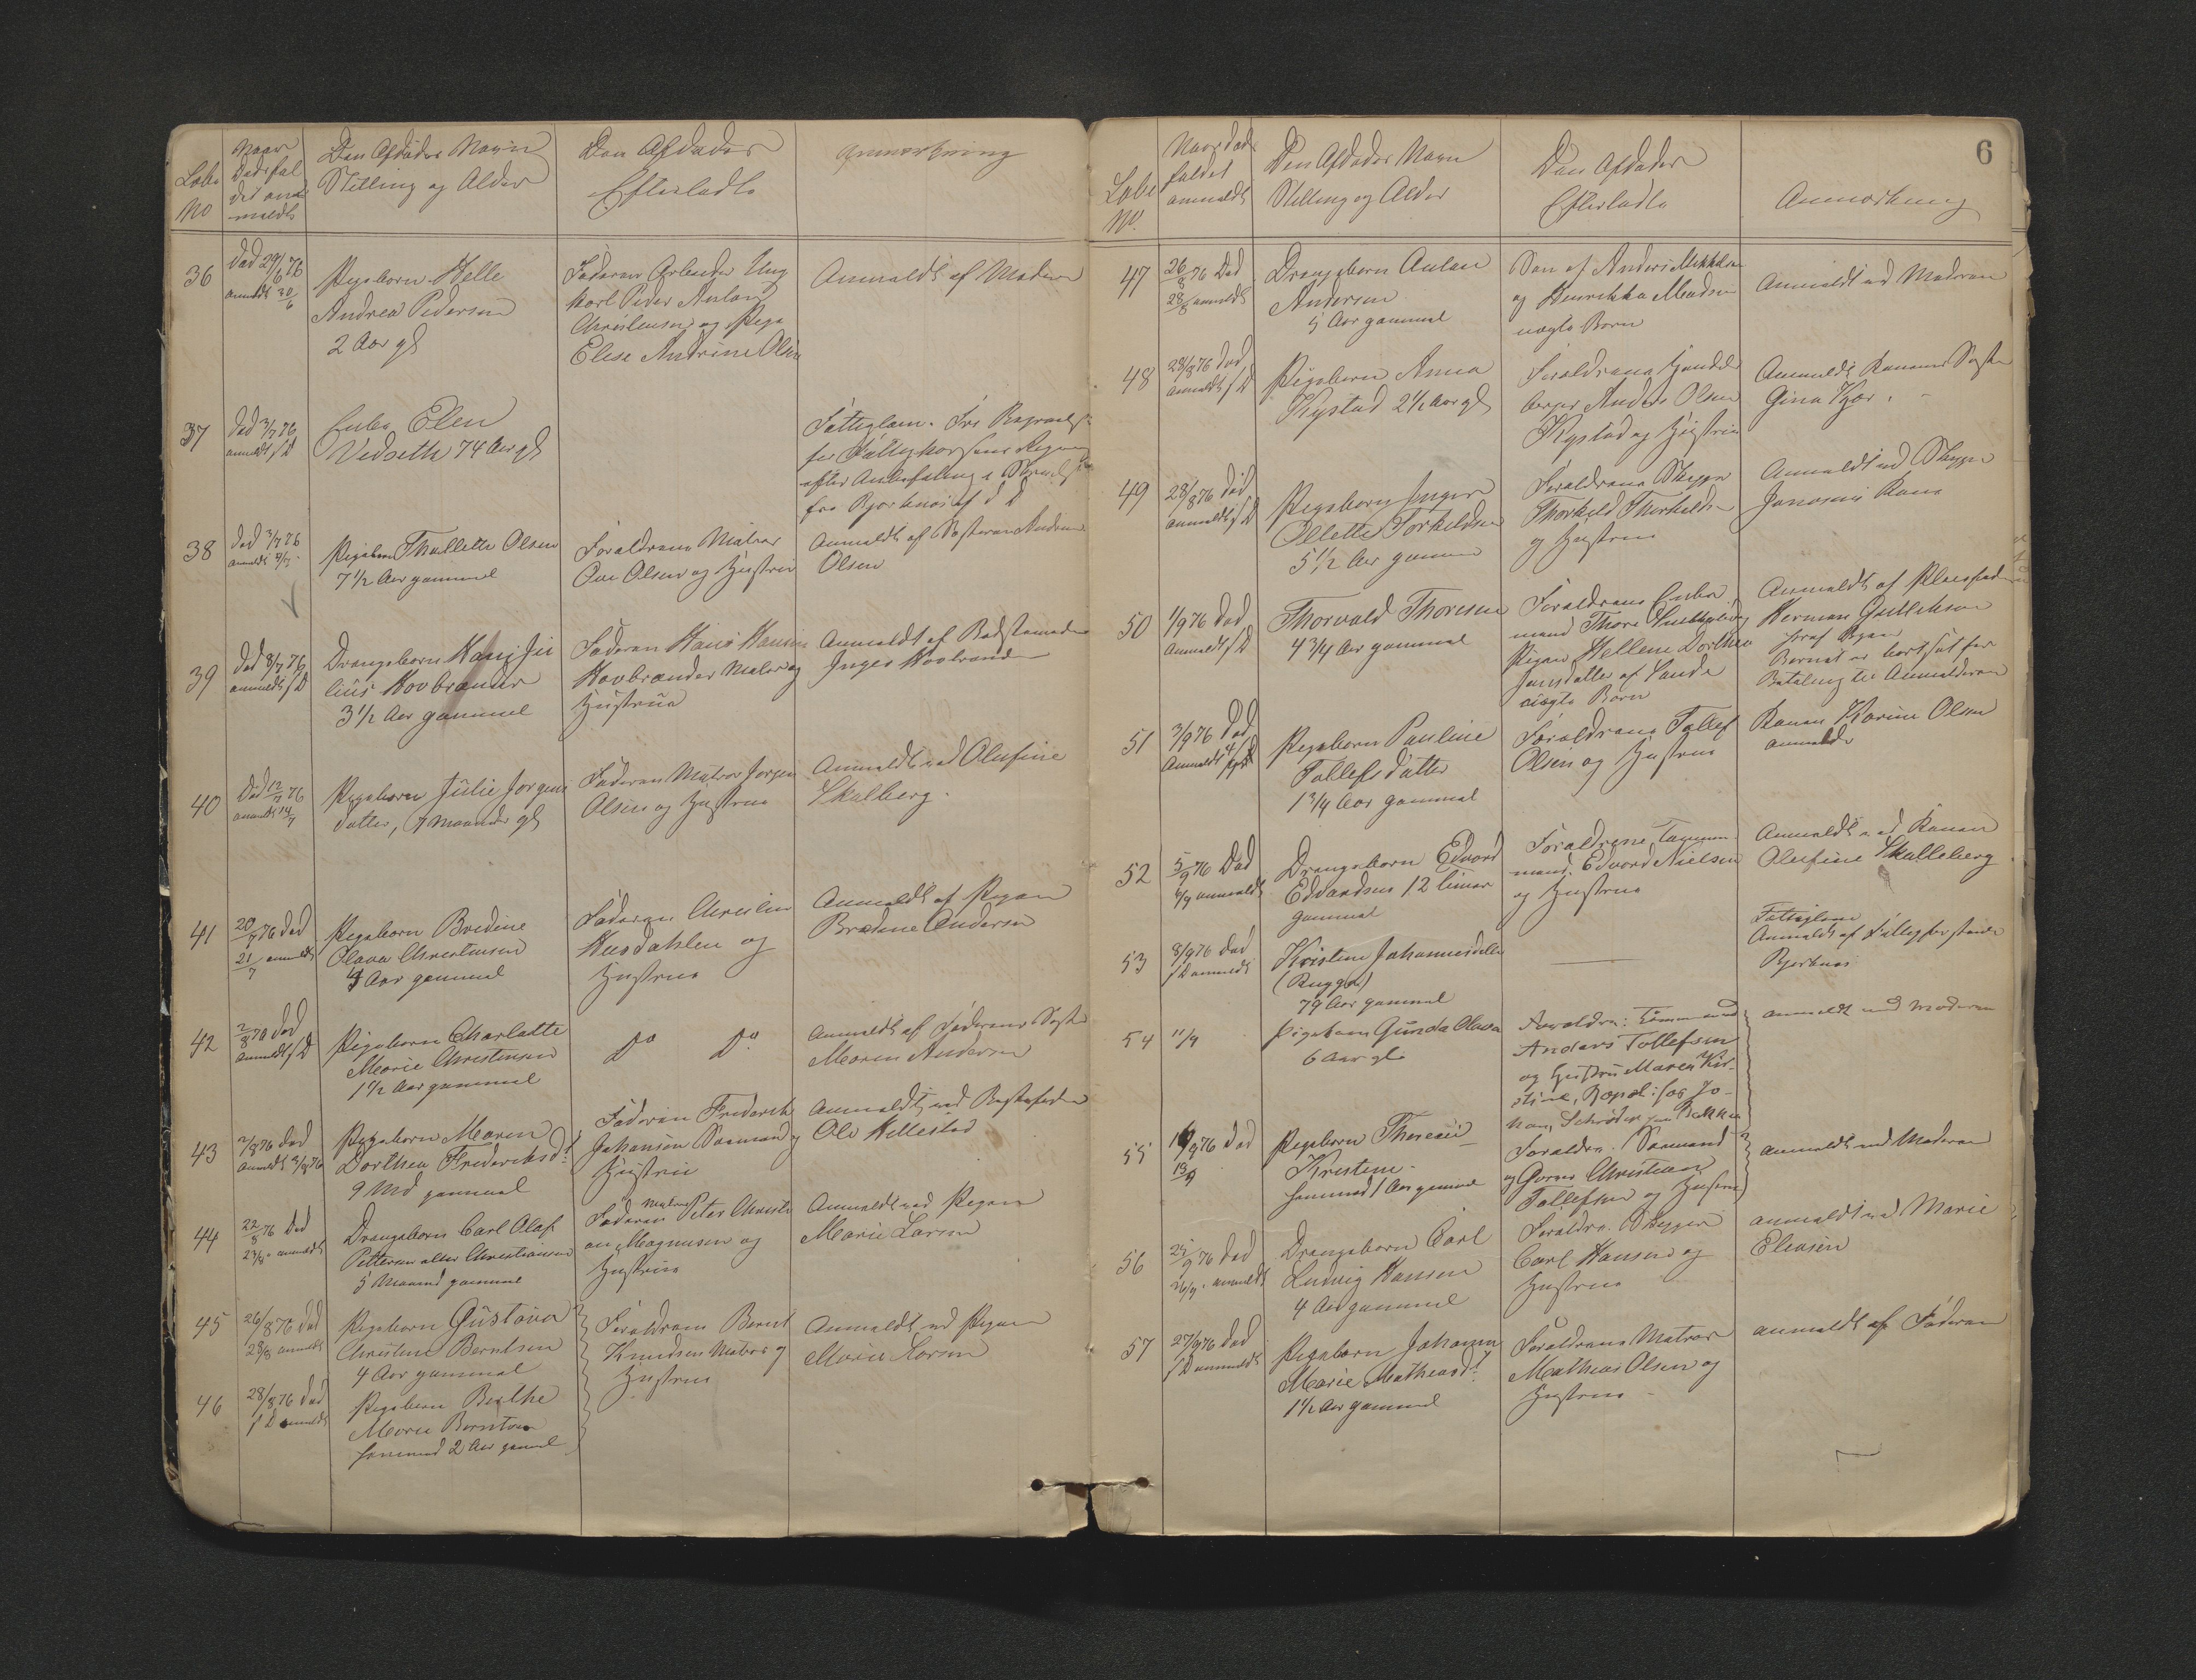 Løbe No
Naar Dødsfal det an- meldt
Den Afdødes Navn Stilling og Alder
Den Afdødes Efterladte
Anmærkning
36
Død 29/6 76
anmeldt 30/6
Pigebarn Helle
Andrea Pedersen
2 Aar gl
Faderen Arbeider Ung
karl Peder Anton
Christensen og Pige
Elise Andrine Olsen
Anmeldt af Moderen
37
Død 3/7 76
anmeldt s D
Enke Elen
Vedseth 74 Aar gl
Fattiglem.
for Fattigkassens Regning
efter Anbefaling
fra Bjerknæs af d D
38
Død 3/7 76
anmeldt 4/7
Pigebarn Thallette Olsen
7 1/2 Aar gammel
Forældrene Matros
Ove Olsen og Hustru
Anmeldt af Søsteren Andrine
Olsen
39
Død 8/7 76
anmeldt s D
Drengebarn Hans Ju
lius Hovbrander
3 1/2 Aar gammel
Faderen Hans Hansen
Hovbrander Maler og
Hustrue
Anmeldt af Bedstemoder
Inger Hovbrand
40
Død 12/7 76
anmeldt 14/7
Pigebarn Julie Jørgens
datter, 7 Maaneder gl
Faderen Matros Jørgen
Olsen og Hustrue
Anmeldt ved Olufine
Skalberg.
41
20/7 76 død
21/7 anmeldt
Pigebarn Bredine
Olava Christensen
4 Aar gammel
Faderen Christen
Husdahlen og
Hustrue
Anmeldt af Pigen
Bredine Andersen
42
2/8 76 død
anmeldt s D
Pigebarn Charlotte
Marie Christensen
1 1/2 Aar gammel
Do Do
Anmeldt af Faderens Søster
Maren Andersen
43
2/8 76 død
anmeldt 3/8 76
Pigebarn Maren
Dorthea Frederiksdt
9 Md gammel
Faderen Frederik
Johansen Sømand og
Hustrue
Anmeldt ved Bestefader
Ole Hellestad
44
22/8 76 død
23/8 anmeldt
Drengebarn Carl Olaf
Pettersen eller Christiansen
5 Maaned gammel
Faderen Matros Peter Christi
an Magnusen og
Hustrue
Anmeldt ved Pigen
Marie Larsen
45
26/8 76 død
28/8 anmeldt
Pigebarn Gustava
Christine Berntsen
4 Aar gammel
Forældrene Bernt
Knudsen Matros og
Hustrue
Anmeldt ved Pigen
Marie Larsen
46
28/8 76 død
s D anmeldt
Pigebarn Berthe
Marie Berntsen
2 Aar gammel
6
Løbe No.
Naar Døds faldet anmeldt
Den Afdødes Navn Stilling og Alder
Den Afdødes Efterladte
Anmærkning
47
26/8 76 Død
28/8 anmeldt
Drengebarn Anton
Andersen
5 Aar gammel
Søn af Anders Mikkelsen
og Henrikke Madsen
uægte Barn
Anmeldt ved Moderen
48
28/8 76 død
anmeldt s D
Pigebarn Anna
Kystad 2 1/2 Aar gl
Forældrene Handels
borger Anders Olsen
Kystad og Hustrue
Anmeldt Konens Søster
Gina Kjær.
49
28/8 76 død
anmeldt s D
Pigebarn Inger
Ollette Torkildsen
5 1/2 Aar gammel
Forældrene Skipper
Thorkild Thorkildsen
og Hustrue
Anmeldt ved Skipper
Jensens Kone
50
1/9 76 død
Anmeldt s D
Thorvald Thoresen
4 3/4 Aar gammel
Forældrene Enke
mand Thore
Pigen Hellene Dorthea
Jensdatter af Sande
uægte Barn
Anmeldt af Pleiefader
Herman Gullikson
Barnet er bortsat for
Betaling til Anmelderen
51
3/9 76 død
Anmeldt 4/9
Pigebarn Pauline
Tollefsdatter
1 3/4 Aar gammel
Forældrene Tollef
Olsen og Hustrue
Konen Karine Olsen
anmeldt
52
5/9 76 Død
6/9 anmeldt
Drengebarn Edvard
Edvardsen 12 timer
gammel
Forældrene Tømmer
mand Edvard Nielsen
og Hustrue
Anmeldt ved Konen
Olufine Skalleberg
53
8/9 76 død
s D anmeldt
Kristine Johannesdatter
79 Aar gammel
Fattiglem
Anmeldt af Fattigforstander
Bjerknæs
54
11/9
Pigebarn Gunda Olava
6 Aar gl.
Forældre: Tømmermand
Anders Tollefsen
og Hustru Maren Kir-
stine,
han, Schrøder
anmeldt ved Moderen
55
9 76 død
13/9
Pigebarn Theresie
Kristine
1 Aar gammel
Forældre. Sømand
Christian
Tollefsen og Hustrue
anmeldt ved Moderen
56
25/9 76 død
26/9 anmeldt
Drengebarn Carl
Ludvig Hansen
4 Aar gammel
Forældre. Skipper
Carl Hansen og
Hustrue
anmeldt ved Marie
Eliasen
57
27/9 76 død
s D anmeldt
Pigebarn Johanne
Marie Matheasdt
1 1/2 Aar gammel
Forældrene Matros
Matheas Olsen og
Hustrue
anmeldt af Faderen